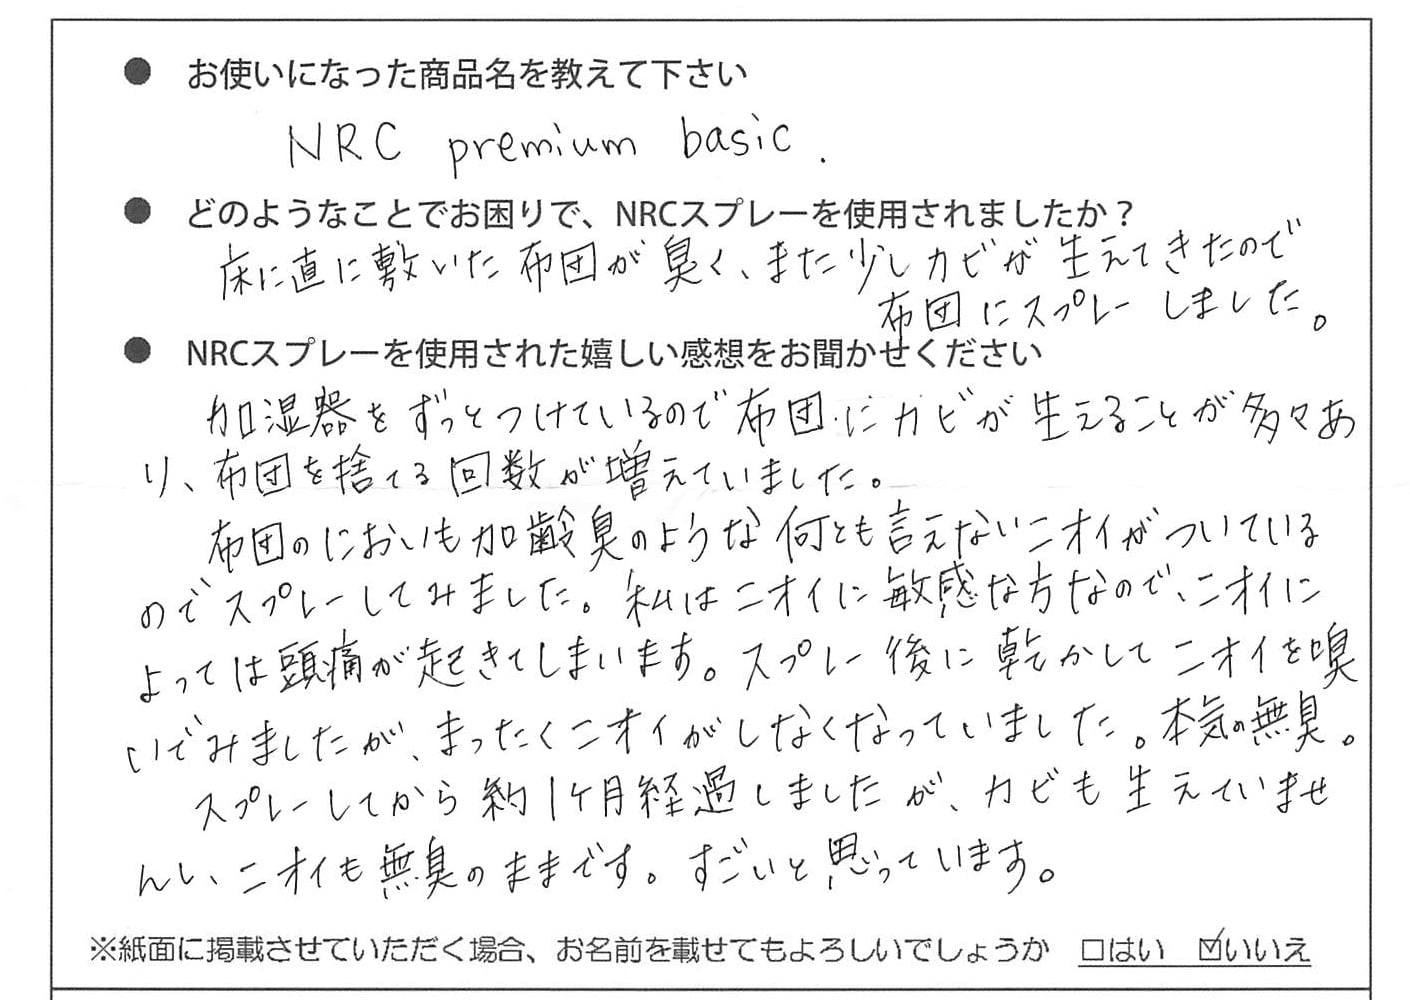 ● お使いになった商品名を教えて下さい
NRC premium basic.
● どのようなことでお困りで、NRCスプレーを使用されましたか？
床に直に敷いた布団が臭く、また少しカビが生えてきたので
布団にスプレーしました。
● NRCスプレーを使用された嬉しい感想をお聞かせください
加湿器をずっとつけているので布団にカビが生えることが多々あ
り、布団を捨てる回数が増えていました。
布団のにおいも加齢臭のような何とも言えないニオイがついている
のでスプレーしてみました。私はニオイに敏感な方なので、ニオイに
よっては頭痛が起きてしまいます。スプレー後に乾かしてニオイを嗅
いでみましたが、まったくニオイがしなくなっていました。本気の無臭。
スプレーしてから約1ケ月経過しましたが、カビも生えていませ
んし、ニオイも無臭のままです。すごいと思っています。
※紙面に掲載させていただく場合、お名前を載せてもよろしいでしょうか □はい ☑いいえ